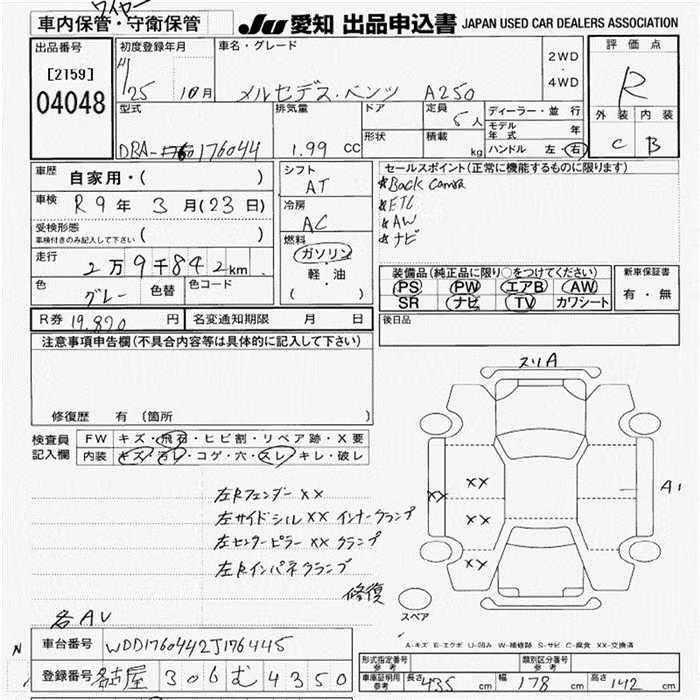 ワイヤー
車内保管・守衛保管
JU 愛知 出品申込書 JAPAN USED CAR DEALERS ASSOCIATION
出品番号 [2159] 04048
初度登録年月 25 10月
車名・グレード メルセデス・ベンツ A250
2WD ・ 4WD
評価点 R
外装 内装 C B
型式 DBA- 176044
排気量 1.99 CC
ドア 形状
定員 5人 積載 kg
ディーラー・並行
モデル年式 年
ハンドル 左・右
車歴 自家用・( )
車検 R9年 3月(23日)
受検形態 車検付きのみ記入して下さい ( )
走行 2万9千842km
色 グレー 色替 色コード
シフト AT
冷房 AC
燃料 ガソリン 軽・油 ( )
セールスポイント(正常に機能するものに限ります)
★Back Camera
★ETC
★AW
★ナビ
装備品(純正品に限り○をつけてください)
PS PW エアB AW
SR ナビ TV カワシート
新車保証書 有・無
R券 19,820 円 名変通知期限 月 日
後日品
注意事項申告欄(不具合内容等は具体的に記入して下さい)
修復歴 有 (箇所 )
検査員記入欄
FW キズ・飛石・ヒビ割・リペア跡・X要
内装 キズ・汚レ・コゲ・穴・スレ・キレ・破レ
スリA
A1
XX
XX
XX
XX
左Rフェンダー XX
左サイドシル XX インナークランプ
左センターピラー XX クランプ
左Rインパネクランプ
修復
スペア
名AU
A-キズ E-エクボ U-凹み W-補修跡 S-サビ C-腐食 XX-交換済
N
車台番号 WDD1760442J176445
登録番号 名古屋 306 む 4350
形式指定番号 参考 類別区分番号 参考
車庫証明用 参考 長さ 435 cm 幅 178 cm 高さ 142 cm